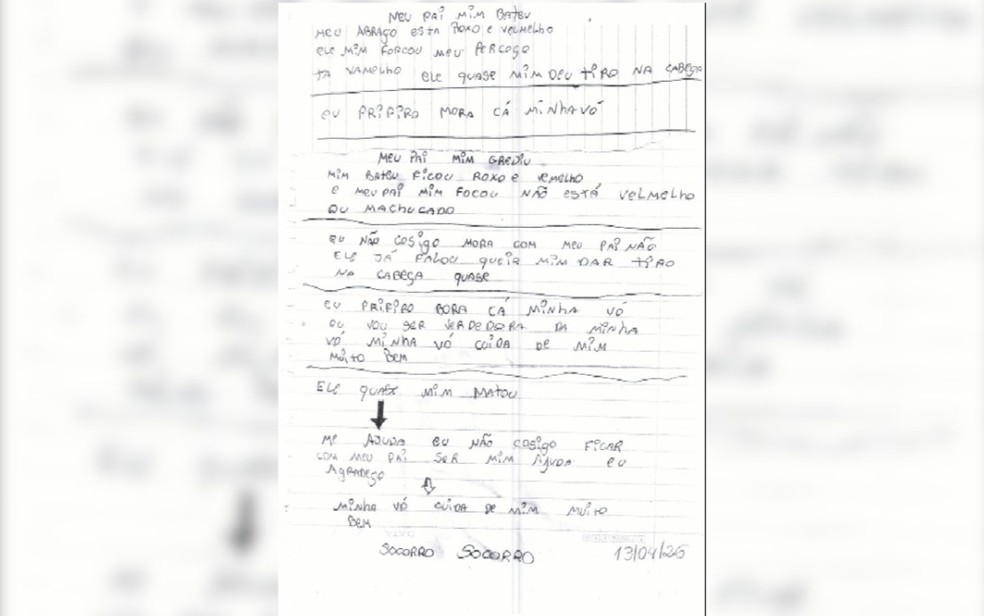 MEU PAI MIM BATEU
MEU ABRAÇO ESTA ROXO E VELMELHO
ELE MIM FORCOU MEU PERCOÇO
TA VAMELHO ELE QUASE MIM DEU TIRO NA CABEÇA
EU PRIFIRO MORA CÁ MINHA VÓ
MEU PAI MIM GREDIU
MIM BATEU FICOU ROXO E VEMELHO
E MEU PAI MIM FOCOU NÃO ESTÁ VELMELHO
OU MACHUCADO
EU NÃO COSIGO MORA COM MEU PAI NÃO
ELE JÁ FALOU QUEIR MIM DAR TIRO
NA CABEÇA QUASE
EU PRIFIRO BORA CÁ MINHA VÓ
OU VOU SER VERDEDORA DA MINHA
VÓ MINHA VÓ CUIDA DE MIM
MUITO BEM
ELE QUASE MIM MATOU
ME AJUDA EU NÃO COSIGO FICAR
COM MEU PAI SER MIM AJUDA EU
AGRADEÇO
MINHA VÓ CUIDA DE MIM MUITO
BEM
SOCORRO SOCORRO 13/04/26